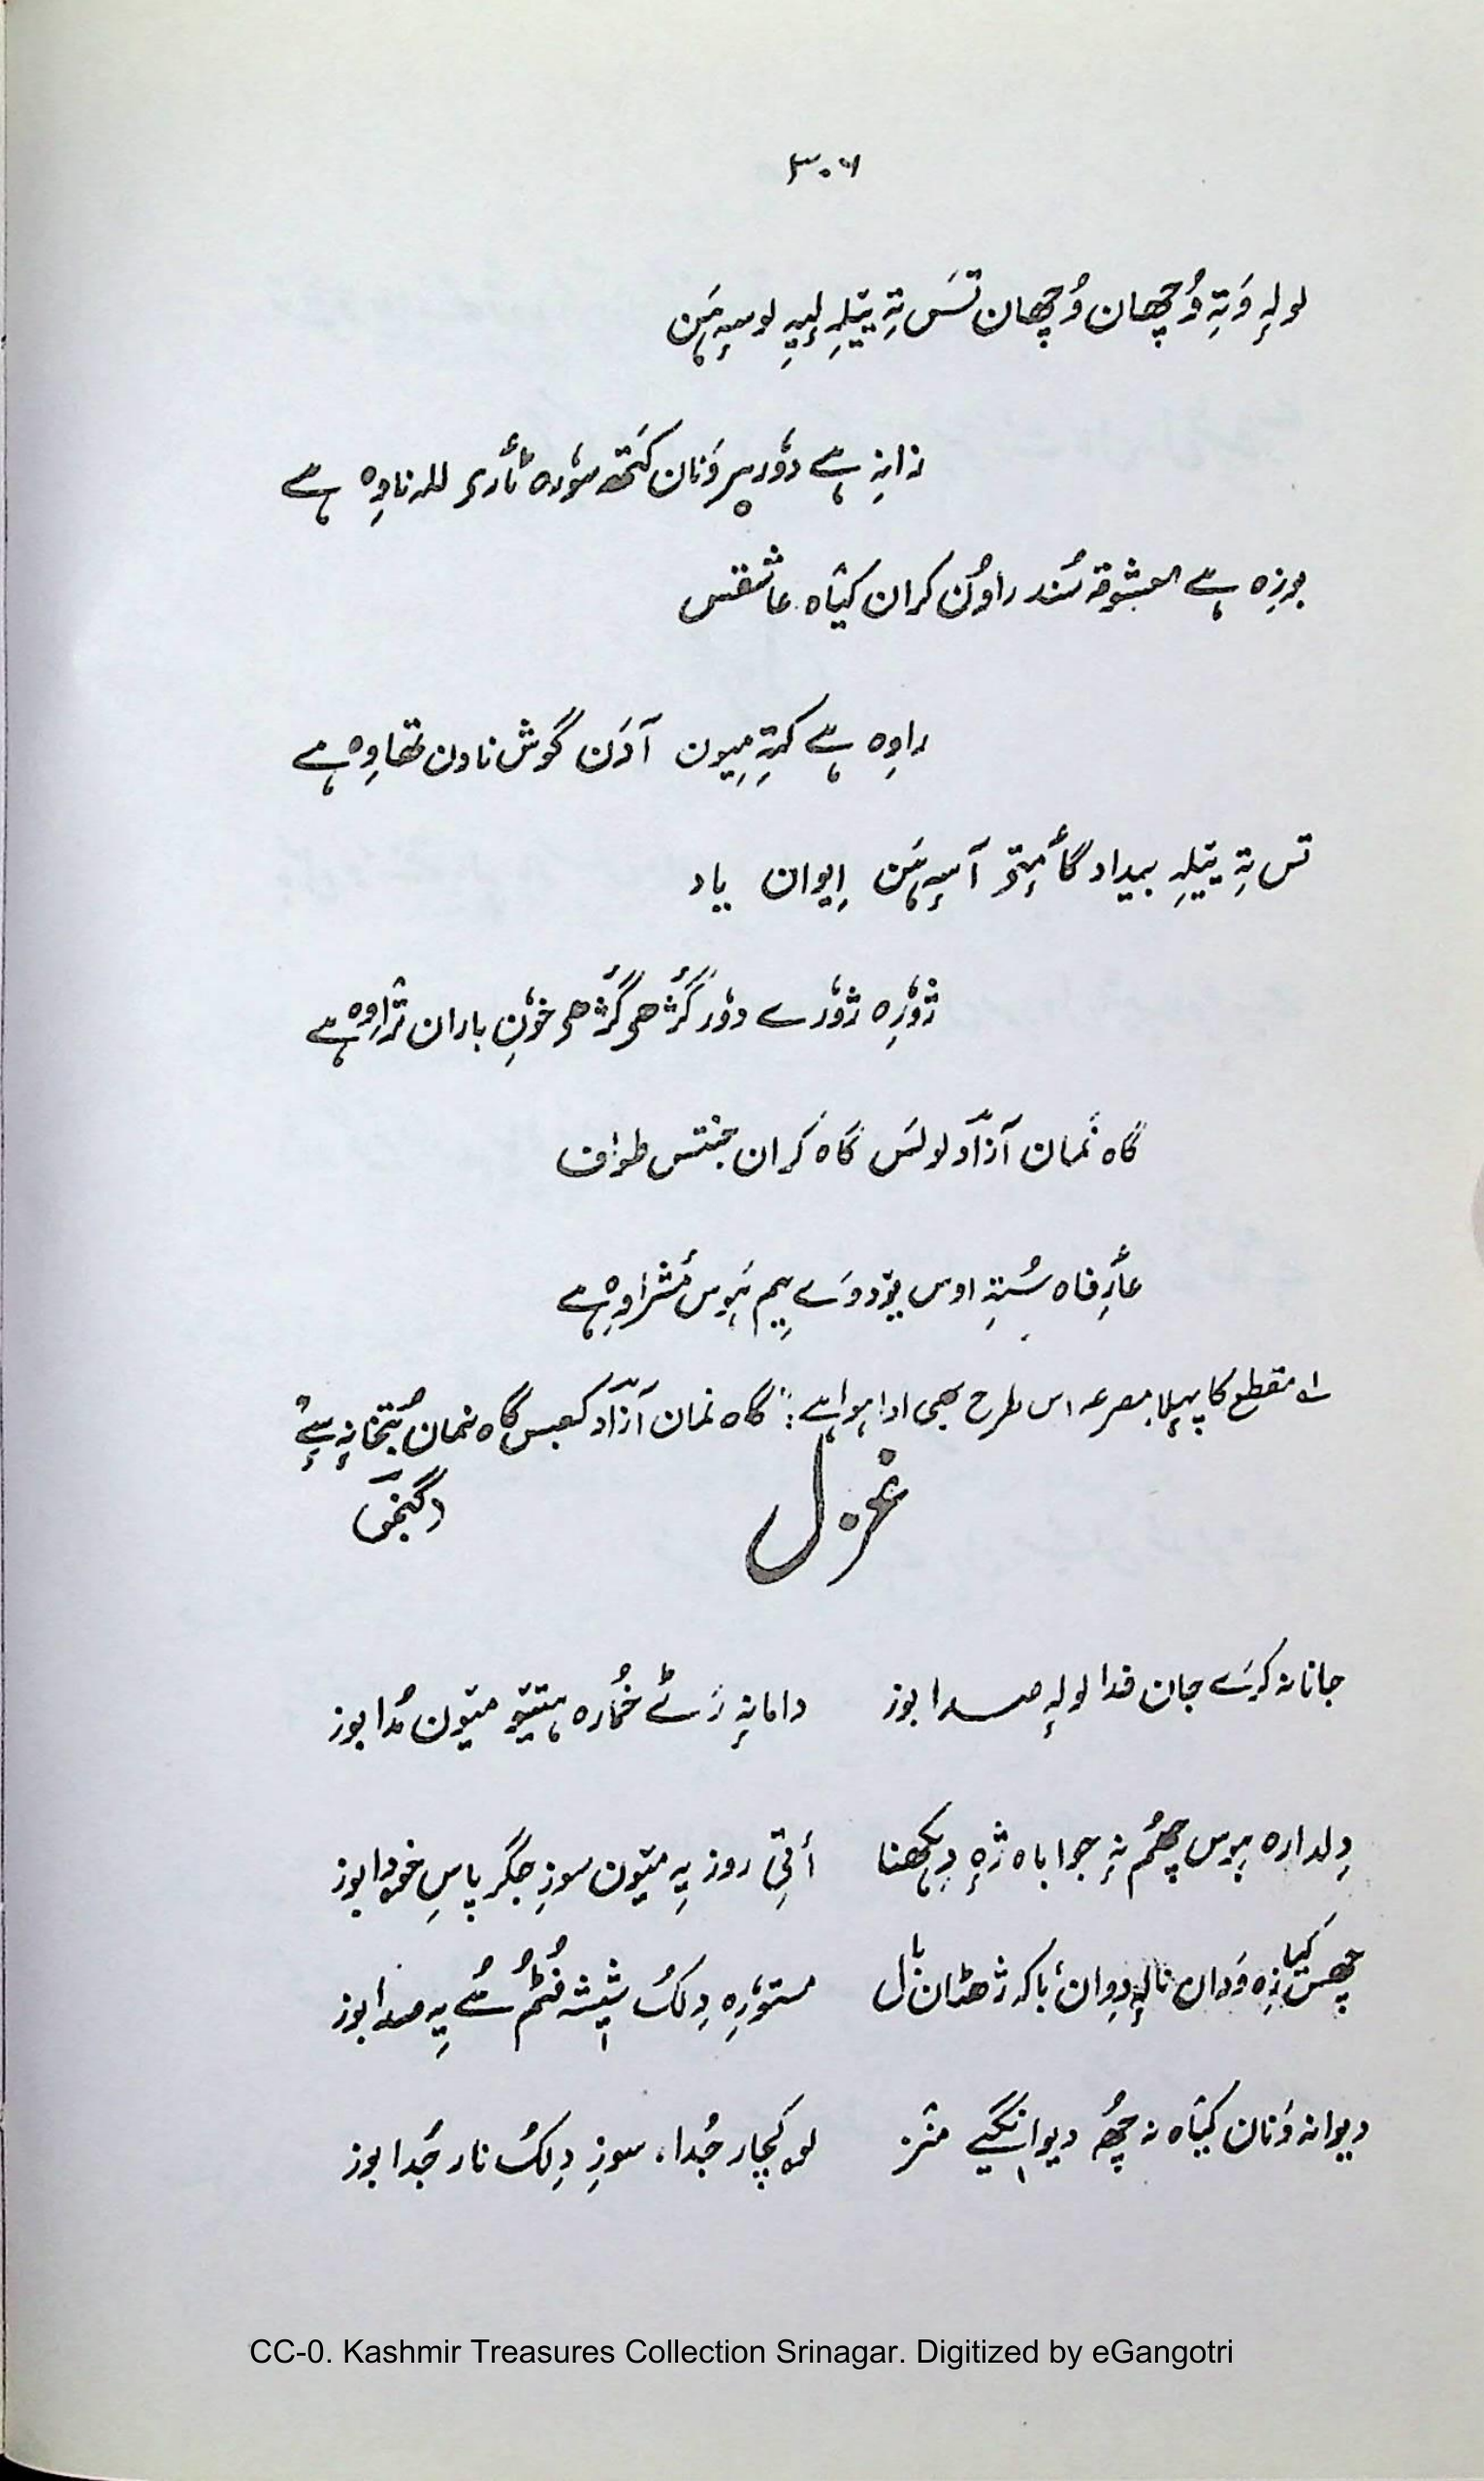 ۳۰۶
لولہٕ وَتہِ وُچھان وُچھان تَس تہِ یَیلہِ لہِیہِ لوسہٕ ہَن
زانہِ ہے دۄور پر وَنان کَتھ سۄرہ تأری للہ ناوِہ ہے
بوزِہ ہے معشوقہ سُند راوُن کران کیٛاہ عاشقس
راوِہ ہے کتہِ میون آدَن گوش نادن تھاوِہ ہے
تس تہِ یَیلہِ بیداد گأمِتۍ آسہٕ ہَن اِیوان یاد
ژوٗرِہ ژوٗرے دوٗر گژھی گژھی خوٗنِ باران ترٛاوِہ ہے
گاہ نَمان آزاد لولَس گاہ کران جنتس طواف
عأرِفاہ سُتہِ اوس یۄدوَے یِم ہَوِس مُشراوِہ ہے
لے مقطع کا پہلا مصرعہ اس طرح بھی ادا ہوا ہے: "گاہ نمان آزاد کعبس گاہ نمان بُتخانہٕ سٕے
(گنجو)
غزل
جانانہ کرَے جان فدا لولہٕ صدا بوز دامانہٕ رَٹے خُمارہ ہتیٚو میٚون مُدا بوز
دِلدارہ پرِس چھُم نہٕ جواباہ ژٕہ دِکھنا أتی روز یہِ میٚون سوزِ جگر پاسِ خودا بوز
چھس کیا زِہ وَدان نالہٕ دِوان، باکہ ژھٹان زٲل مستوٗرِہ دِلُک شیٖشہ فُٹُم سُے یہِ صدا بوز
دیوانہ وَنان کیٛاہ نہ چھُہ دیوانگیے منٛز لۄکچار جُدا، سوزِ دِلُک نار جُدا بوز
CC-0. Kashmir Treasures Collection Srinagar. Digitized by eGangotri